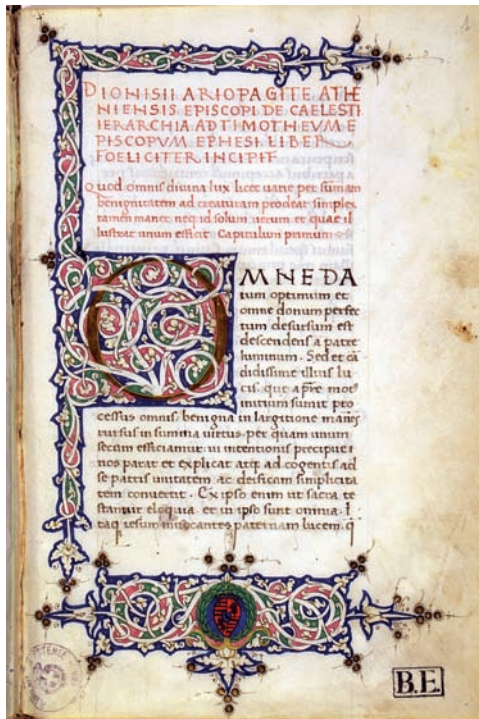 DIONISII ARIOPAGITE ATHE
NIENSIS EPISCOPI DE CAELESTI
IERARCHIA AD TIMOTHEVM E
PISCOPVM EPHESI. LIBER
FOELICITER INCIPIT
Quod omnis divina lux licet varie per summam
benignitatem ad creaturam prodeat simplex
tamen manet neq id solum verum et quae il
lustrat unum efficit. Capitulum primum
OMNE DA
tum optimum et
omne donum perfec
tum desursum est
descendens a patre
luminum. Sed et cā
didissime illius lu
cis. que a pr̄e mot
initium sumit pro
cessus omnis. benigna in largitione manās
rursus in summa virtus. per quam unum
secum efficiamur ui intentionis precipue
nos parat et explicat atq̨ ad cogentis ad
se patris unitatem ac deificam simplicita
tem convertit. Ex ipso enim ut sacra te
stantur eloquia. et in ipso sunt omnia. I
taq̨ iesum invocantes paternam lucem. q̄
B.E.